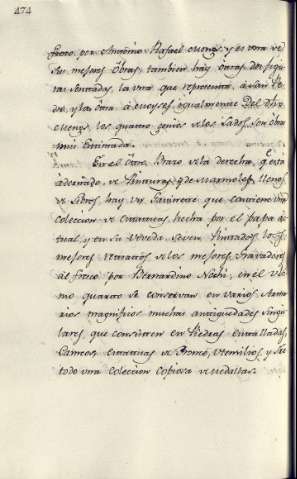 474
fresco, por Antonio Rafael Mengs, y es una de
sus mejores obras, tambien hay otras dos figu
ras sentadas, la una que representa, a San Pe
dro, y la otra a Moyses igualmente Del dho
Mengs, los quatro genios a los lados, son obra
mui estimada.
En el otro Brazo a la derecha, q.e está
adornado, de Pinturas, y de Marmoles llenos,
de libros, hay un Gavinete que contiene una
coleccion de estampas, hecha por el papa ac
tual, y en su Boveda, se ven Pintados, los
mejores retratos de los mejores Gravadores
al fresco por Bernardino Nochi, en el ulti
mo quarto se conservan en varios Arma
rios magnificos muchas antiguedades singu
lares, que consisten en Piedras entalladas,
Cameos, estatuas de Bronce, Utensilios, y so
todo una coleccion copiosa de medallas.